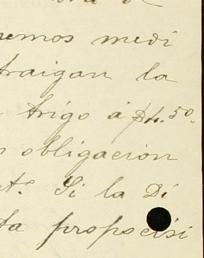 remos medi
traigan la
trigo á
obligacion
Si la Di
ta proposisi